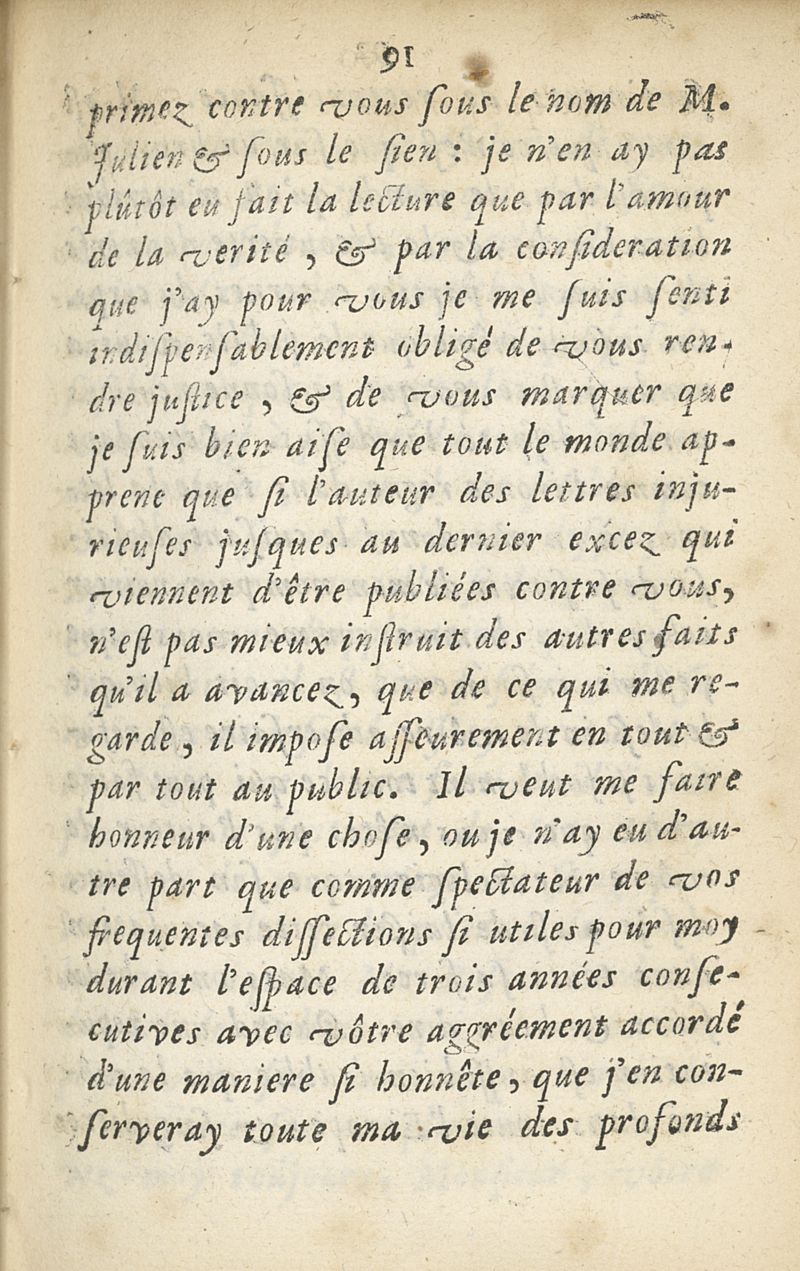 91
primez contre vous ſous le nom de M.
Julien & ſous le ſien : je n'en ay pas
plûtôt eu fait la lecture que par l'amour
de la verité , & par la conſideration
que j'ay pour vous je me ſuis ſenti
indiſpenſablement obligé de vous ren-
dre juſtice , & de vous marquer que
je ſuis bien aiſe que tout le monde ap-
prene que ſi l'auteur des lettres inju-
rieuſes juſques au dernier excez qui
viennent d'être publiées contre vous,
n'eſt pas mieux inſtruit des autres faits
qu'il a avancez, que de ce qui me re-
garde, il impoſe aſſeurement en tout &
par tout au public. Il veut me faire
honneur d'une choſe, ou je n'ay eu d'au-
tre part que comme ſpectateur de vos
frequentes diſſections ſi utiles pour moy
durant l'eſpace de trois années conſe-
cutives avec vôtre aggréement accordé
d'une maniere ſi honnête, que j'en con-
ſerveray toute ma vie des profonds